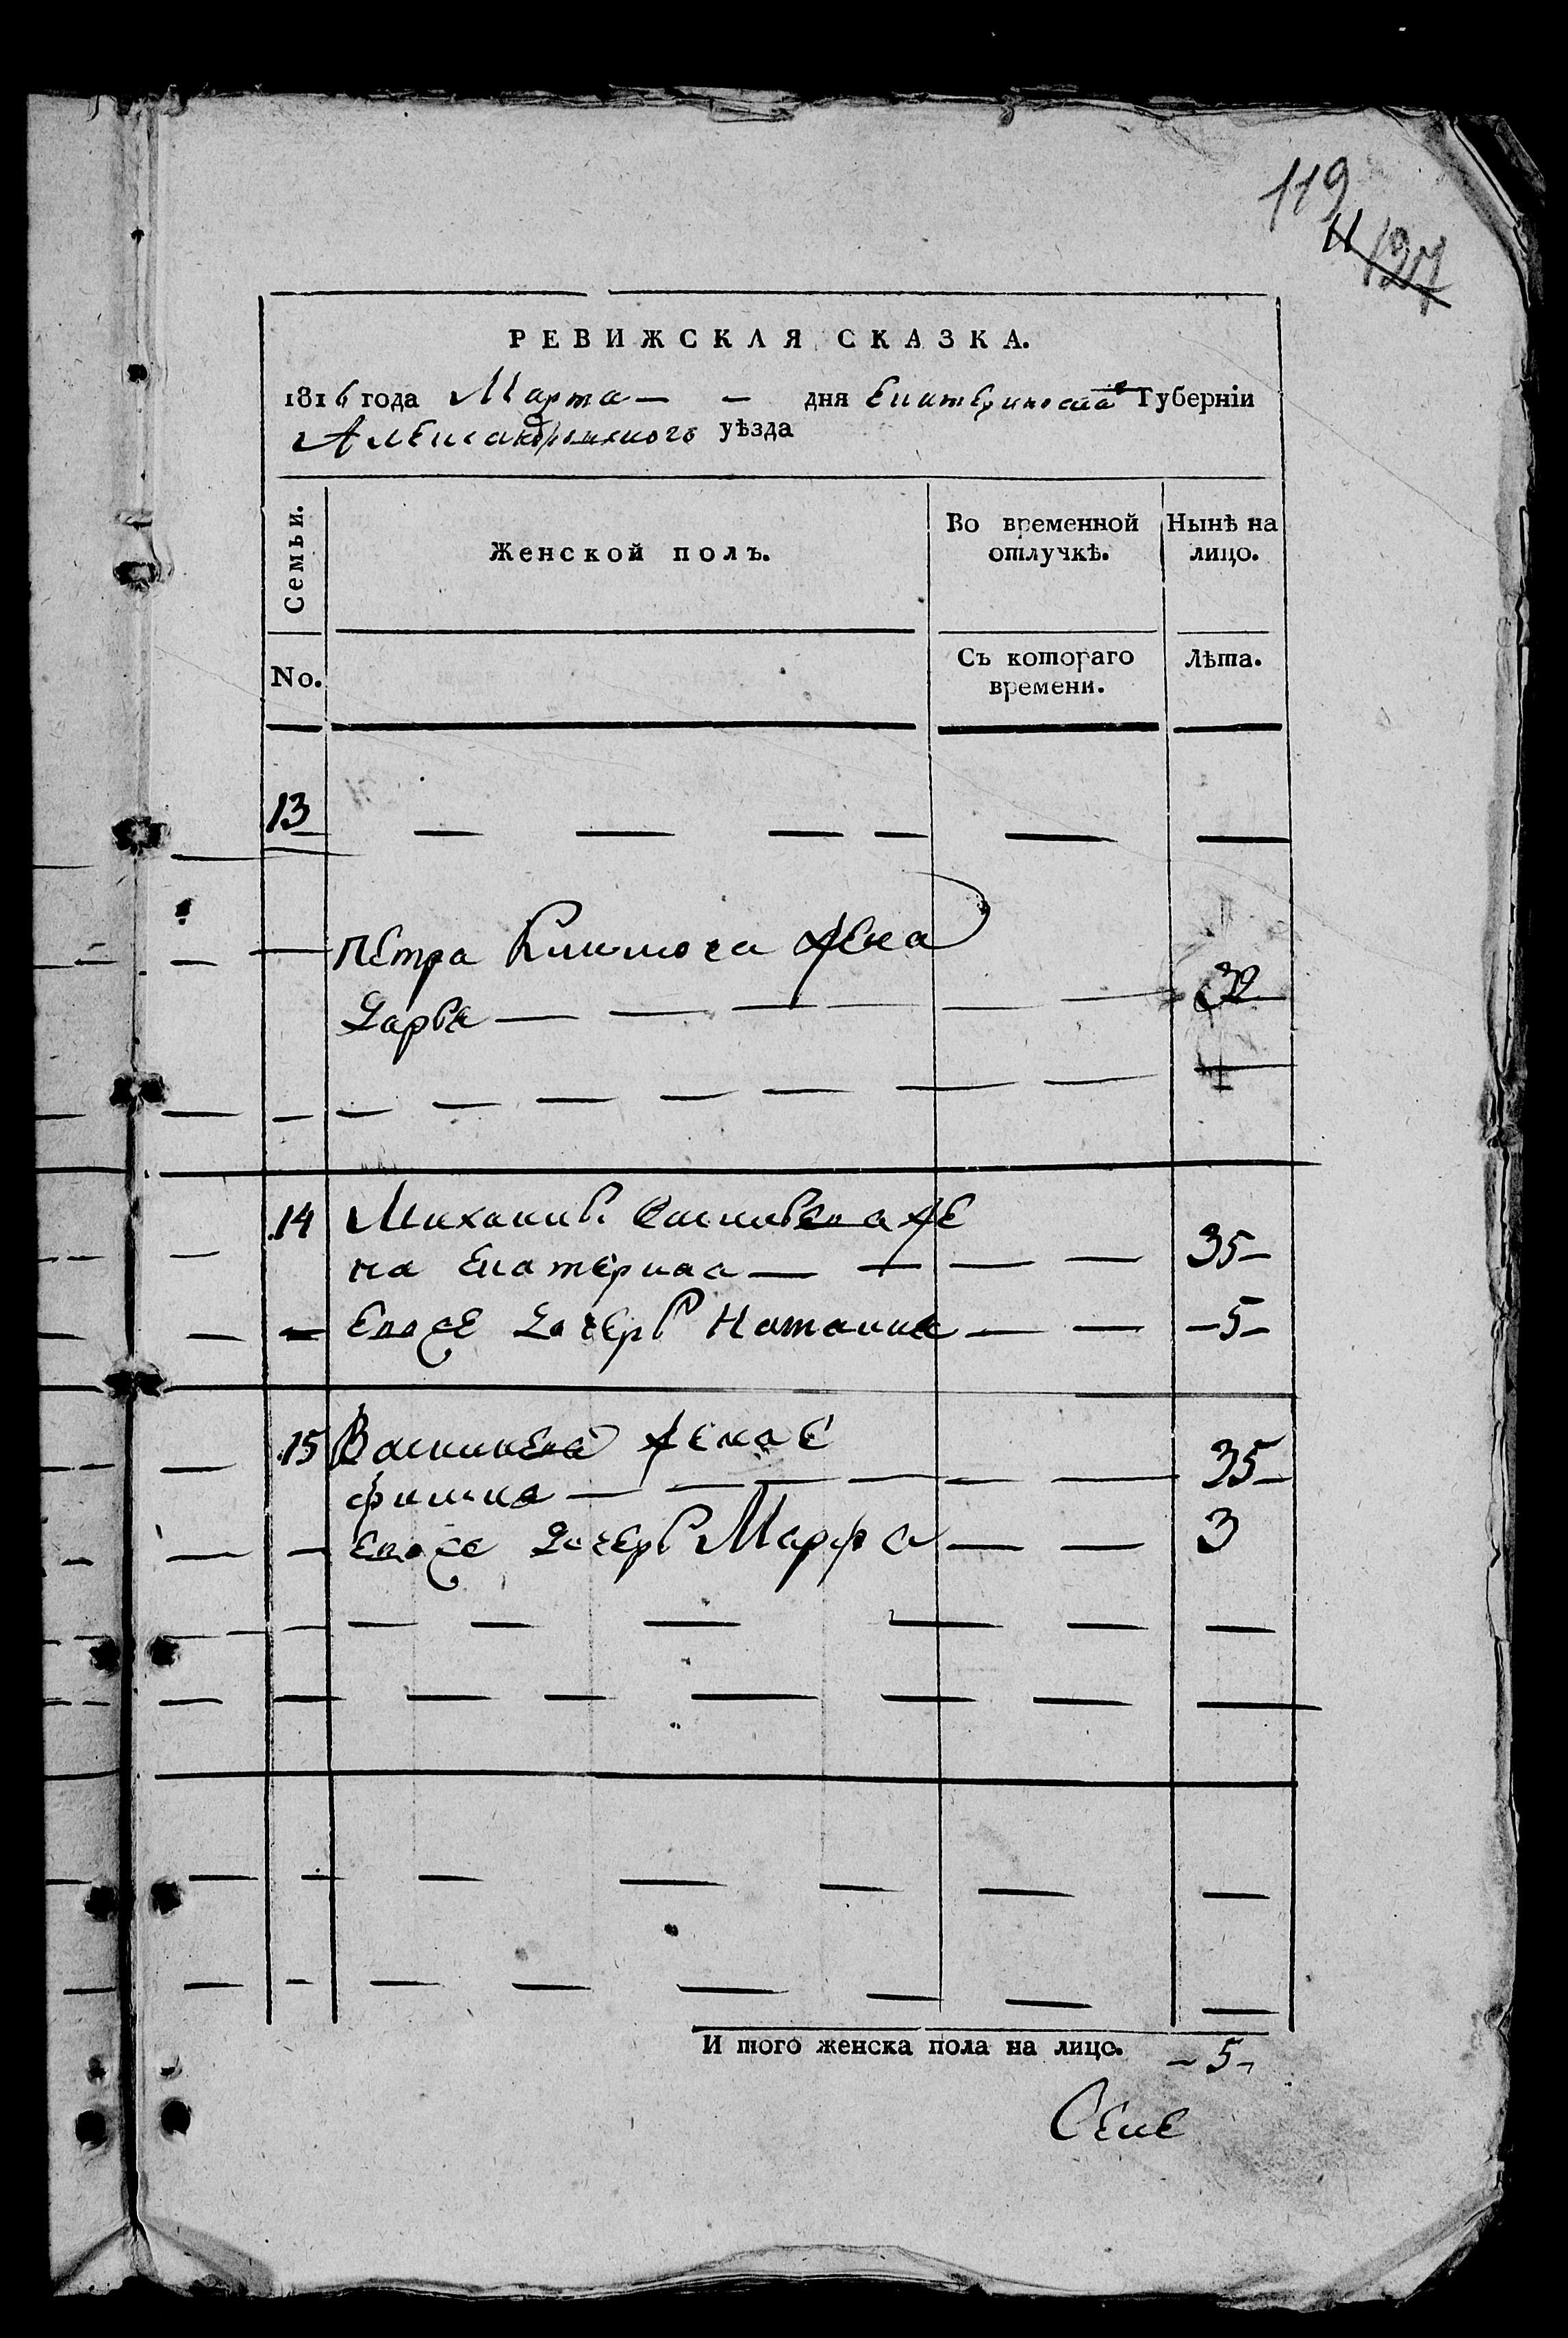 119
11 127
РЕВИЖСКАЯ СКАЗКА.
1816 года Марта — — дня Екатериносла Губерніи
Александровского уѣзда
Семьи.
Женской полъ.
Во временной отлучкѣ.
Нынѣ на лицо.
No.
Съ котораго времени.
Лѣта.
13 — — — — — —
— Петра Климова жена
Дарья — — — — — — 32
— — — — — — — —
14 Михайлы жe
на Екатерина — — — — 35 —
— Евоже дочерь Наталия — — — 5 —
15 Василиева жена Е
фимия — — — — — — 35 —
— Евоже дочерь Марфа — — 3
— — — — — — —
— — — — — — —
— — — — — —
— — — — — — —
И того женска пола на лицо. — 5 —